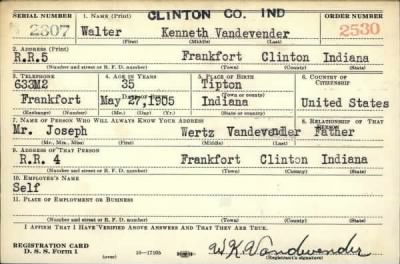 SERIAL NUMBER 1. NAME (Print) CLINTON CO. IND ORDER NUMBER
S 2807 Walter Kenneth Vandevender 2530
(First) (Middle) (Last)
2. ADDRESS (Print)
R.R.5 Frankfort Clinton Indiana
(Number and street or R. F. D. number) (Town) (County) (State)
3. TELEPHONE 4. AGE IN YEARS 5. PLACE OF BIRTH 6. COUNTRY OF CITIZENSHIP
633M2 35 Tipton
DATE OF BIRTH (Town or county)
Frankfort May 27,1905 Indiana United States
(Exchange) (Number) (Mo.) (Day) (Yr.) (State or country)
7. NAME OF PERSON WHO WILL ALWAYS KNOW YOUR ADDRESS 8. RELATIONSHIP OF THAT PERSON
Mr. Joseph Wertz Vandevender Father
(Mr., Mrs., Miss) (First) (Middle) (Last)
9. ADDRESS OF THAT PERSON
R.R. 4 Frankfort Clinton Indiana
(Number and street or R. F. D. number) (Town) (County) (State)
10. EMPLOYER'S NAME
Self
11. PLACE OF EMPLOYMENT OR BUSINESS
(Number and street or R. F. D. number) (Town) (County) (State)
I AFFIRM THAT I HAVE VERIFIED ABOVE ANSWERS AND THAT THEY ARE TRUE.
REGISTRATION CARD
D. S. S. Form 1 16—17105 W. K. Vandevender
(Registrant's signature)